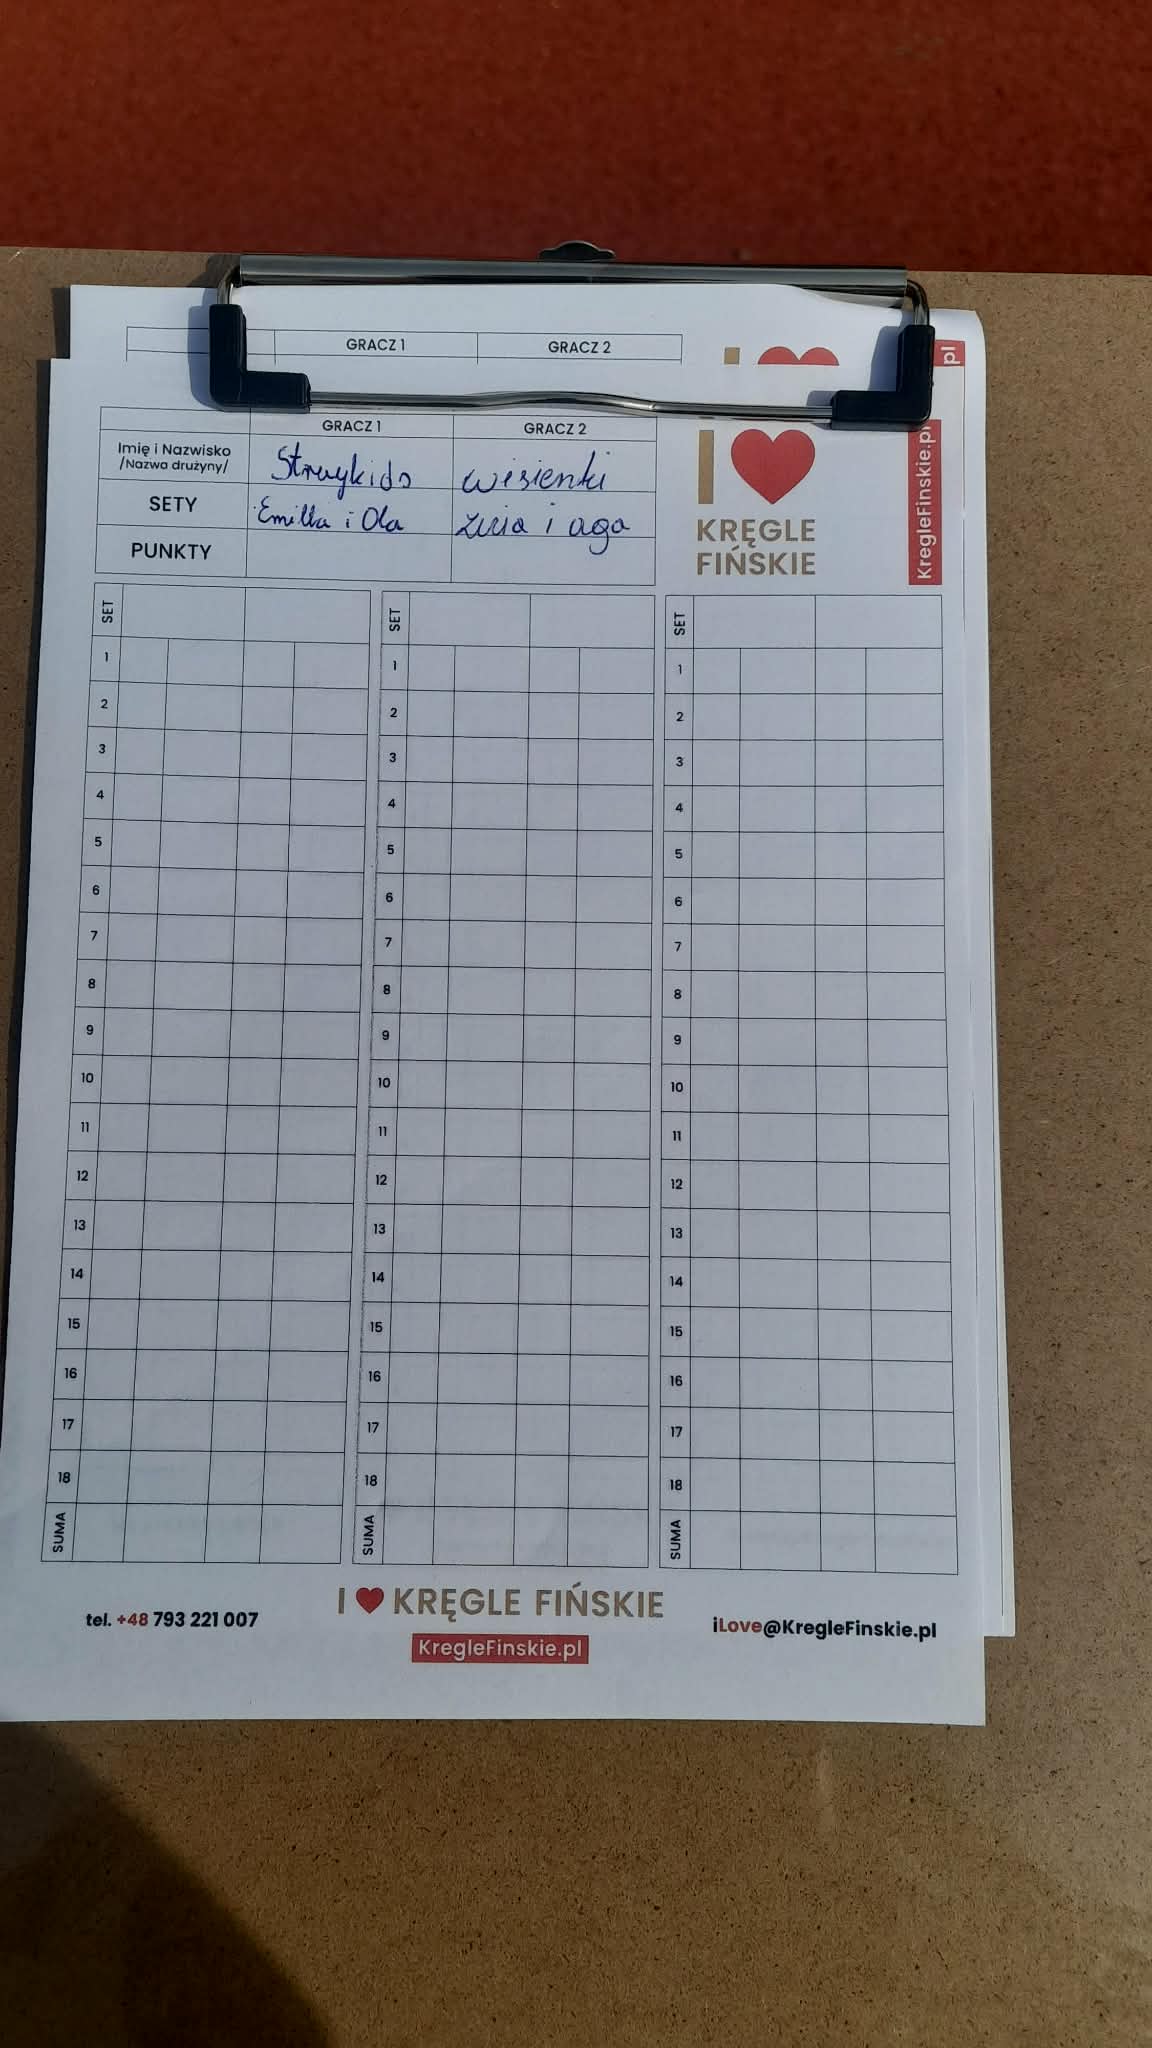 GRACZ 1 GRACZ 2
pl
GRACZ 1 GRACZ 2
Imię i Nazwisko
/Nazwa drużyny/
Straykids wisienki
SETY Emilka i Ola Zuzia i aga
PUNKTY
I
KRĘGLE
FIŃSKIE
KregleFinskie.pl
SET SET SET
1 1 1
2 2 2
3 3 3
4 4 4
5 5 5
6 6 6
7 7 7
8 8 8
9 9 9
10 10 10
11 11 11
12 12 12
13 13 13
14 14 14
15 15 15
16 16 16
17 17 17
18 18 18
SUMA SUMA SUMA
I ❤ KRĘGLE FIŃSKIE
tel. +48 793 221 007
KregleFinskie.pl
iLove@KregleFinskie.pl